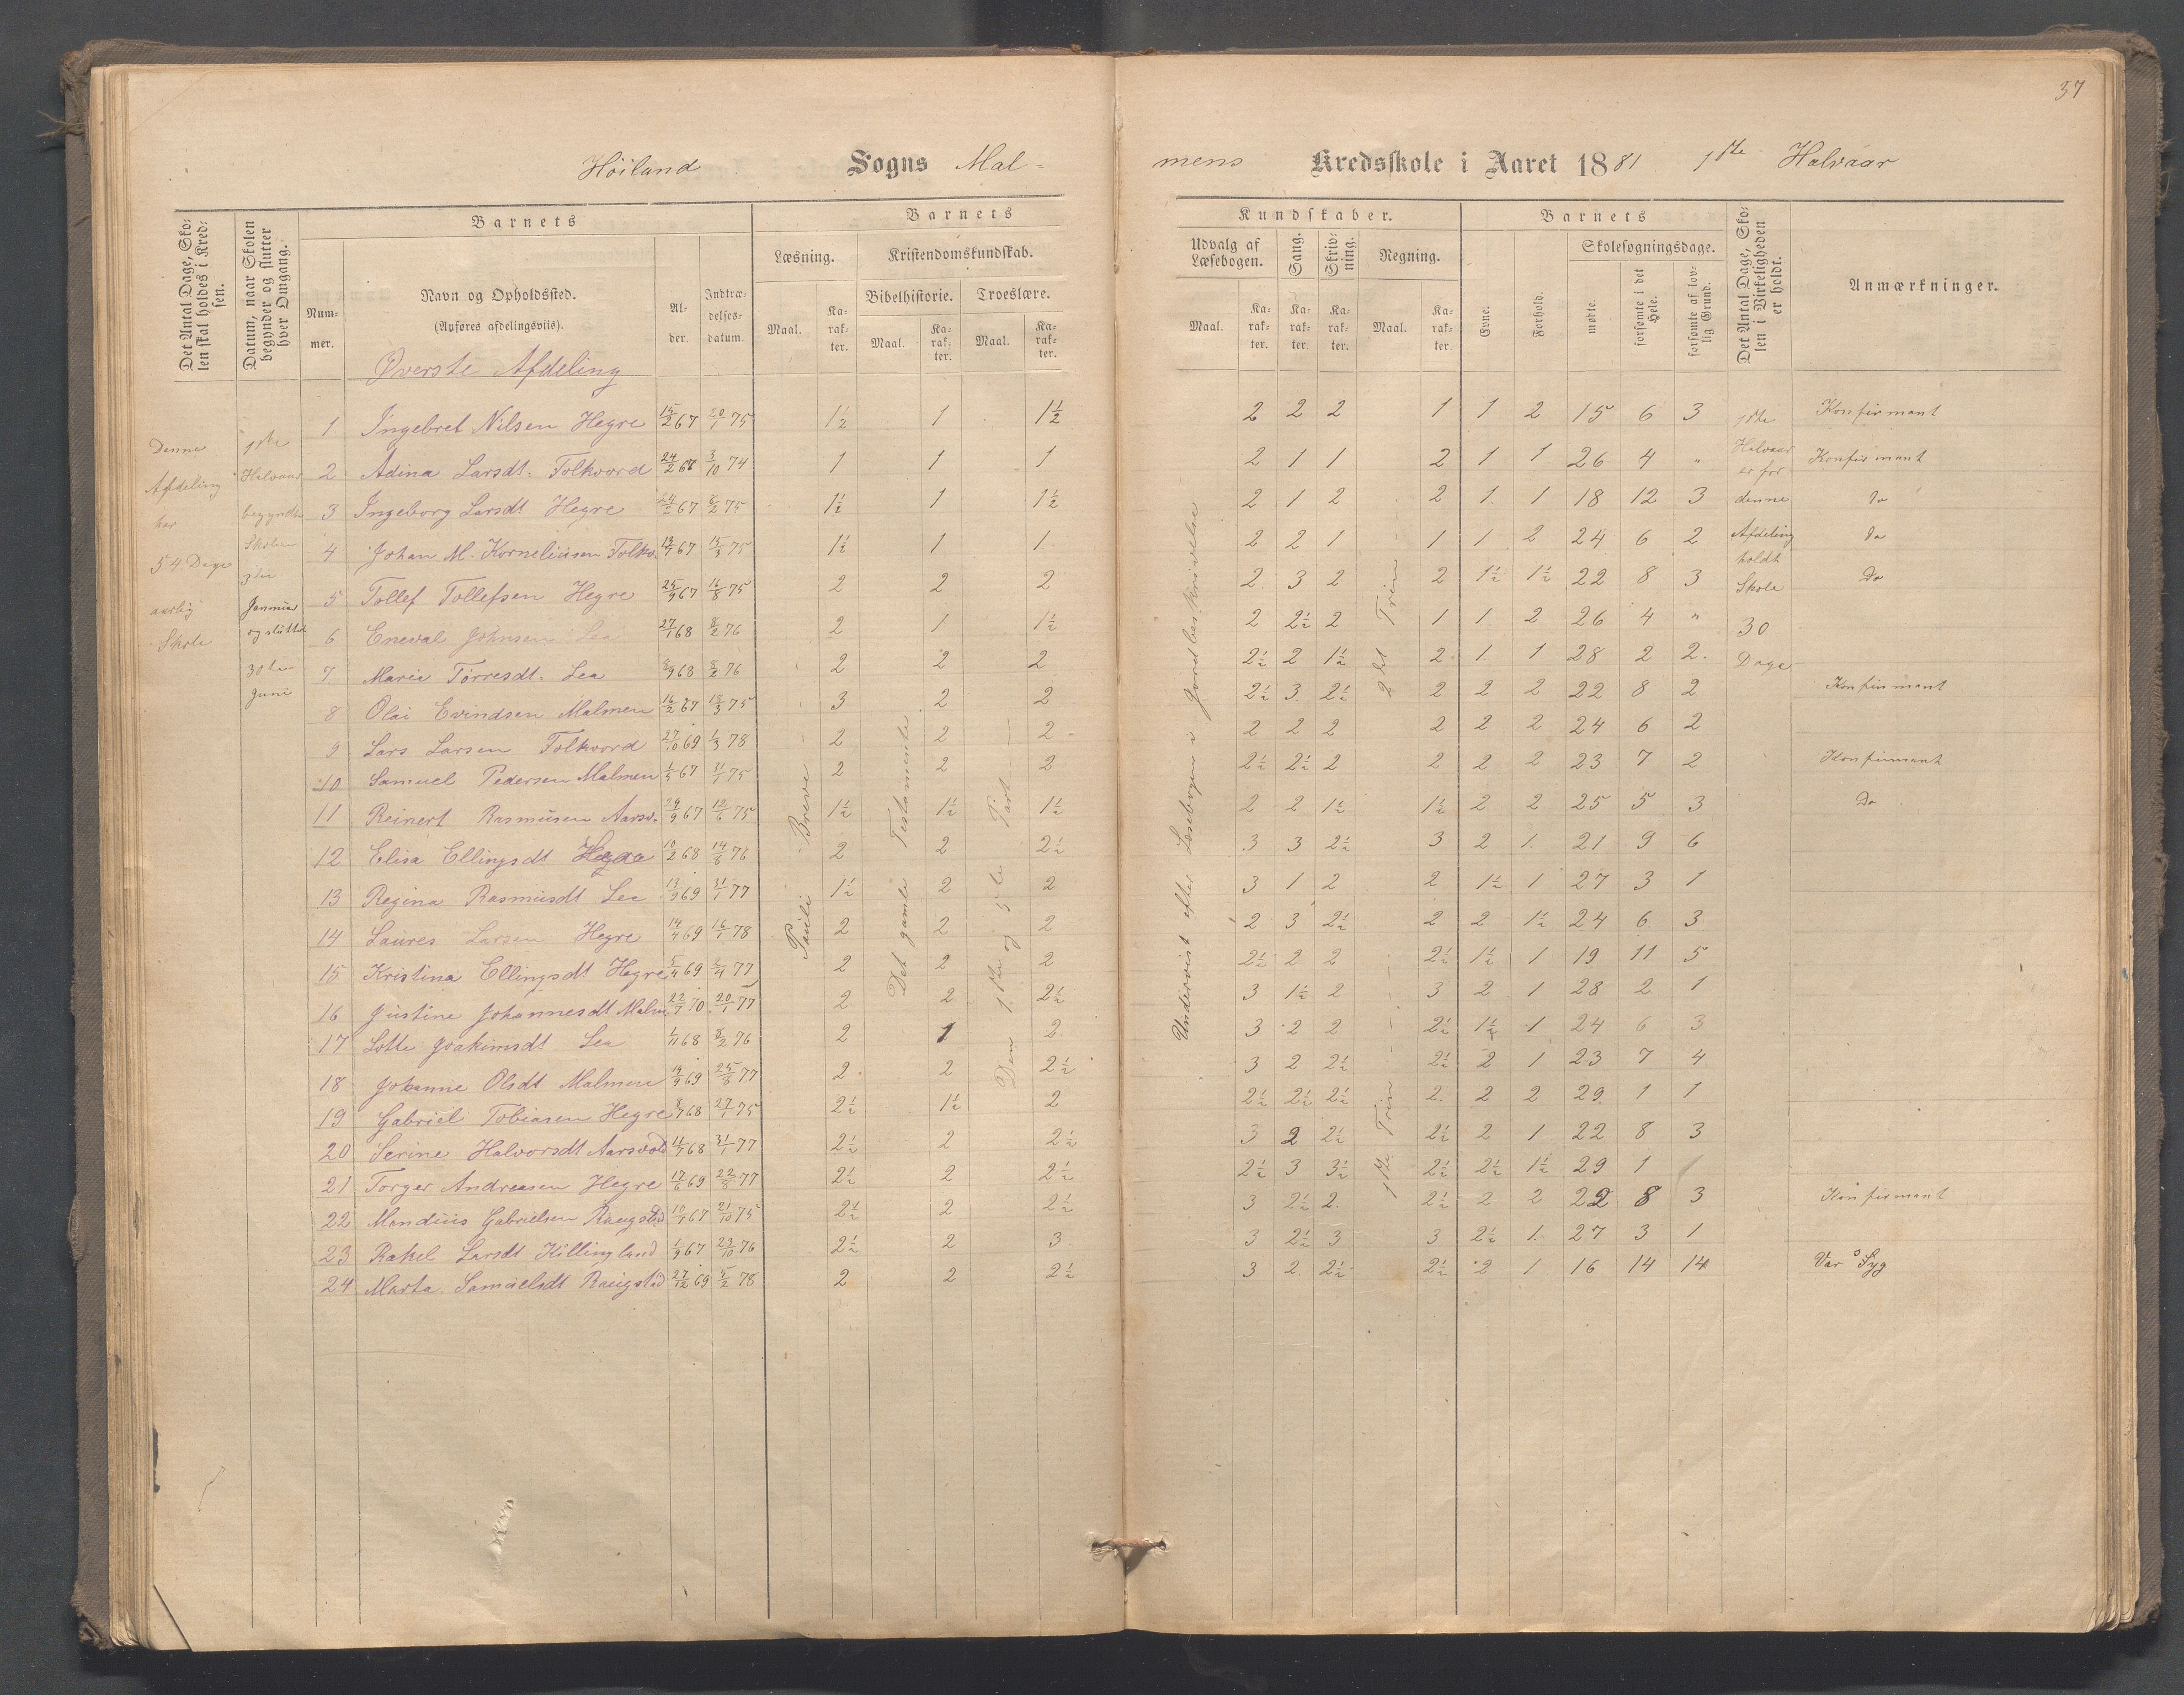 37
Höiland Sogns Mal-
mens Kredsskole i Aaret 1881 1ste Halvaar
Det Antal Dage, Skolen skal holdes i Kredsen.
Datum, naar Skolen begynder og slutter hver Omgang.
Barnets
Nummer.
Navn og Opholdssted.
(Anføres afdelingsviis).
Alder.
Indtrædelsesdatum.
Barnets
Læsning.
Kristendomskundskab.
Bibelhistorie. Troeslære.
Maal. Karakter. Maal. Karakter. Maal. Karakter.
Kundskaber.
Udvalg af Læsebogen. Sang. Skrivning. Regning.
Maal. Karakter. Karakter. Karakter. Maal. Karakter.
Barnets
Evne. Forhold.
Skolesøgningsdage.
mødte. forsømte i det Hele. forsømte af lovlig Grund.
Det Antal Dage, Skolen i Virkeligheden er holdt.
Anmærkninger.
Øverste Afdeling
Denne Afdeling har 54 Dage aarlig Skole
1ste Halvaar begyndte Skolen 3die Januar og sluttet 30te Juni
Pauli Breve
Det gamle Testamente
Den 1ste og 5te Part
Undervist efter Læsebogen i Jordbeskrivelse
2det Trin
1ste Trin
1ste Halvaar er for denne Afdeling holdt Skole 30 Dage
1 Ingebret Nilsen Hegre 15/2 67 20/1 75 1½ 1 1½ 2 2 2 1 1 2 15 6 3 Konfirmant
2 Adina Larsdt. Folkvord 24/2 67 3/10 74 1 1 1 2 1 1 2 1 1 26 4 " Konfirmant
3 Ingeborg Larsdt Hegre 24/2 67 8/2 75 1½ 1 1½ 2 1 2 2 1 1 18 12 3 do
4 Johan M. Korneliusen Folkv. 13/7 67 15/3 75 1½ 1 1 2 2 1 1 1 2 24 6 2 do
5 Tollef Tollefsen Hegre 25/9 67 16/8 75 2 2 2 2 3 2 2 1½ 1½ 22 8 3 Do
6 Eneval Johnsen Lea 27/1 68 8/2 76 2 1 1½ 2 2½ 2 1 1 2 26 4 "
7 Marie Torresdt. Lea 8/9 68 8/2 76 2 2 2 2½ 2 1½ 2 1 1 28 2 2
8 Olai Evindsen Malmen 16/2 67 15/3 75 3 2 2 2½ 3 2½ 2 2 2 22 8 2 Konfirmant
9 Lars Larsen Folkvord 27/10 69 1/3 78 2 2 2 2 2 2 2 2 2 24 6 2
10 Samuel Pedersen Malmen 1/5 67 31/1 75 2 2 2 2½ 2½ 2 2 2 2 23 7 2 Konfirmant
11 Reinert Rasmusen Aarsv. 29/9 67 12/6 75 1½ 1½ 1½ 2 2 1½ 1½ 2 2 25 5 3 Do
12 Elisa Ellingsdt Hegre 10/2 68 14/8 76 2 2 2½ 3 3 2½ 3 2 1 21 9 6
13 Regina Rasmusdt Lea 13/9 69 31/1 77 1½ 2 2 3 1 2 2 1½ 1 27 3 1
14 Laures Larsen Hegre 14/4 69 16/1 78 2 2 2 2 3 2½ 2 2 1½ 24 6 3
15 Kristina Ellingsdt Hegre 5/4 69 2/4 77 2 2 2 2½ 2 2 2½ 1½ 1 19 11 5
16 Justine Johannesdt Malm. 22/7 70 20/1 77 2 2 2½ 3 1½ 2 3 2 1 28 2 1
17 Lotte Joakimsdt Lea 1/11 68 8/2 76 2 1 2 3 2 2 2½ 1½ 1 24 6 3
18 Johanne Olsdt Malmen 19/9 69 25/8 77 2 2 2½ 3 2 2½ 2½ 2 1 23 7 4
19 Gabriel Tobiasen Hegre 8/7 68 27/1 75 2½ 1½ 2 2½ 2½ 2½ 2 2 2 29 1 1
20 Serine Halvorsdt Aarsvold 11/7 68 31/1 77 2½ 2 2½ 3 2 2½ 2½ 2 1 22 8 3
21 Torger Andreasen Hegre 17/6 69 22/8 77 2½ 2 2½ 2½ 3 3½ 2½ 2½ 1½ 29 1
22 Mandius Gabrielsen Raugstad 10/7 67 21/10 75 2½ 2 2½ 3 2½ 2 2½ 2 2 22 8 3 Konfirmant
23 Rakel Larsdt Killingland 1/9 67 23/10 76 2½ 2 3 3 2½ 3 3 2½ 1 27 3 1
24 Marta Samuelsdt Raugstad 27/12 69 5/2 78 2 2 2½ 3 2 2½ 2½ 2 1 16 14 14 Var Syg